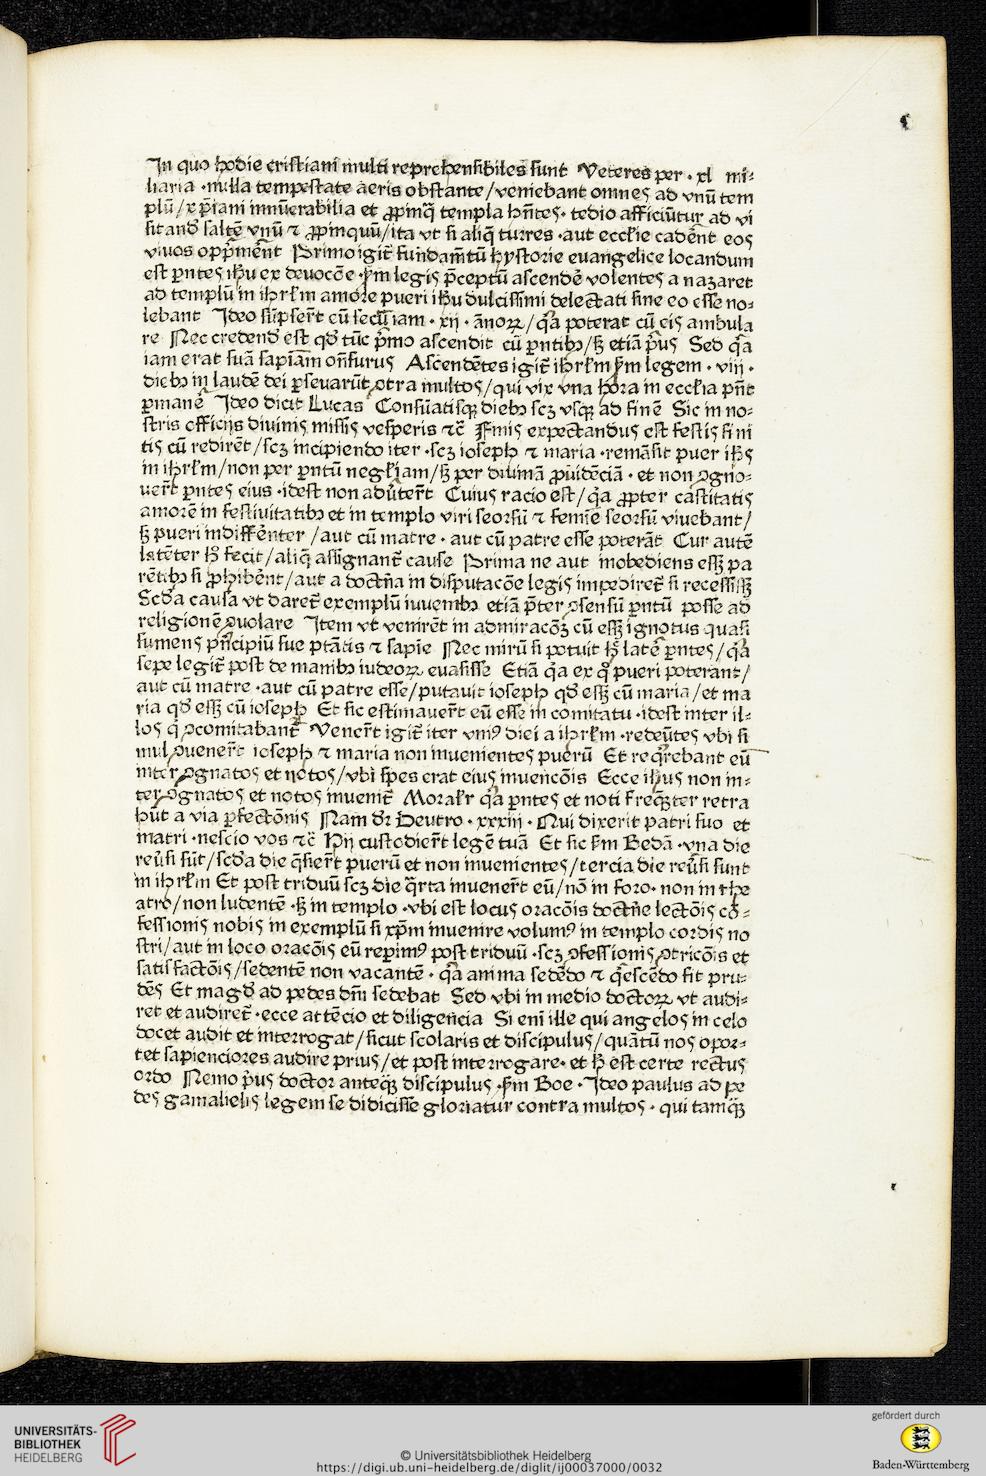 In quo hodie cristiani multi reprehensibiles sunt Veteres per · xl mi⸗
liaria · nulla tempestate aeris obstante/veniebant omnes ad vnū tem
plū/xp̄iani innūerabilia et ꝓpinq̄ templa hn̄tes· tedio afficiūtur ad vi
sitand̄ saltē vnū ⁊ ꝓpinquū/ita vt si aliq̄ turres · aut eccl̄ie cadēnt eos
viuos opp̄mēnt Primo igit̄ fundam̄tū hystorie euangelice locandum
est pn̄tes ih̄u ex deuocōe · s̄m legis p̄ceptū ascendē volentes a nazaret
ad templū in ihrl̄m amore pueri ih̄u dulcissimi delectati sine eo esse no⸗
lebant Ideo sūpser̄t cū secū iam · xij · ānoꝝ/q̄a poterat cū eis ambula
re Nec credend̄ est qd̄ tūc p̄mo ascendit cū pn̄tibꝫ/sꝫ etiā p̄us Sed q̄a
iam erat suā sapiām on̄surus Ascendētes igit̄ ihrl̄m s̄m legem · viij ·
diebꝫ in laudē dei ꝑseuarūt ꝯtra multos/qui vix vna hora in eccl̄ia pn̄t
ꝑmanē Ideo dicit Lucas Consūatisqꝫ diebꝫ scꝫ vsqꝫ ad finē Sic in no⸗
stris officijs diuinis missis vesperis ⁊c̄ Finis expectandus est festis fini
tis cū redirēt/scꝫ incipiendo iter · scꝫ ioseph ⁊ maria · remāsit puer ih̄s
in ihrl̄m/non per pn̄tū negl̄iam/sꝫ per diuinā ꝓuidēciā · et non ꝯgno⸗
uer̄t pn̄tes eius · idest non aduūter̄t Cuius racio est/q̄a ꝓpter castitatis
amorē in festiuitatibꝫ et in templo viri seorsū ⁊ femīe seorsū viuebant/
sꝫ pueri indiffēnter /aut cū matre · aut cū patre esse poterāt Cur autē
latēter h̄ fecit/aliq̄ assignant̄ cause Prima ne aut inobediens essꝫ pa
rētibꝫ si ꝓhibēnt/aut a doctn̄a in disputacōe legis impediret̄ si recessissꝫ
Scd̄a causa vt daret̄ exemplū iuuenibꝫ etiā p̄ter ꝯsensū pn̄tū posse ad
religionē ꝯuolare Item vt venirēt in admiracōꝫ cū essꝫ ignotus quasi
sumens pn̄cipiū sue ptātis ⁊ sapie Nec mirū si potuit h̄ latē pn̄tes/q̄a
sepe legit̄ post de manibꝫ iudeoꝝ euasisse Etiā q̄a ex quo pueri poterant/
aut cū matre · aut cū patre esse/putauit ioseph qd̄ essꝫ cū maria/et ma
ria qd̄ essꝫ cū ioseph Et sic estimauer̄t eū esse in comitatu · idest inter il⸗
los q̄ ꝯcomitabant̄ Vener̄t igit̄ iter vniꝰ diei a ihrl̄m · redeūtes vbi si
mul ꝯuener̄t ioseph ⁊ maria non inuenientes puerū Et req̄rebant eū
inter ꝯgnatos et notos/vbi spes erat eius inuencōis Ecce ih̄us non in⸗
ter ꝯgnatos et notos inuenit̄ Moral̄r q̄a pn̄tes et noti freq̄nter retra
hūt a via ꝑfectōnis Nam dr̄ Deutro · xxxiij · Qui dixerit patri suo et
matri · nescio vos ⁊c̄ Hij custodier̄t legē tuā Et sic s̄m Bedā · vna die
reuūsi sūt/scd̄a die q̄sier̄t puerū et non inuenientes/tercia die reuūsi sunt
in ihrl̄m Et post triduū scꝫ die q̄rta inuener̄t eū/nō in foro· non in the
atro/non ludentē · sꝫ in templo · vbi est locus oracōis doctn̄e lectōis cō⸗
fessionis nobis in exemplū si xp̄m inuenire volumꝰ in templo cordis no
stri/aut in loco oracōis eū reperimꝰ post triduū · scꝫ ꝯfessionis ꝯtricōis et
satisfactōis/sedentē non vacantē · q̄a anima sedēdo ⁊ q̄escēdo fit pru⸗
dēs Et magd̄ ad pedes dn̄i sedebat Sed vbi in medio doctoꝝ vt audi⸗
ret et audiret̄ · ecce attēcio et diligencia Si enī ille qui angelos in celo
docet audit et interrogat/sicut scolaris et discipulus/quātū nos opor⸗
tet sapienciores audire prius/et post interrogare· et h̄ est certe rectus
ordo Nemo p̄us doctor anteq̄ꝫ discipulus · s̄m Boe · Ideo paulus ad pe
des gamalielis legem se didicisse gloriatur contra multos · qui tamq̄ꝫ
UNIVERSITÄTS-
BIBLIOTHEK
HEIDELBERG
© Universitätsbibliothek Heidelberg
https://digi.ub.uni-heidelberg.de/diglit/ij00037000/0032
gefördert durch
Baden-Württemberg